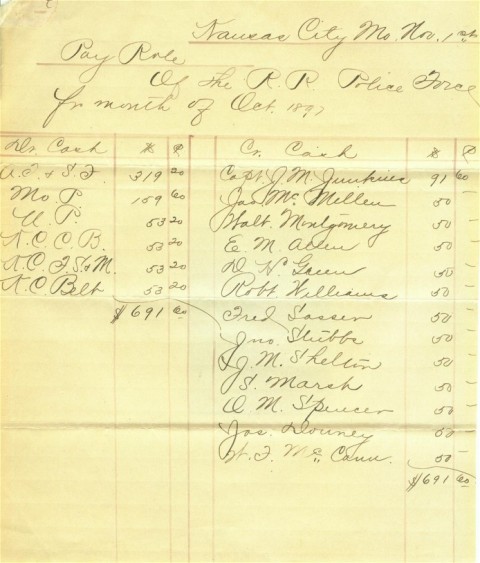 Kansas City Mo. Nov. 1st
Pay Role
Of the R. R. Police Force
for month of Oct. 1897
Dr. Cash $ ¢ Cr. Cash $ ¢
A.T. & S.F. 319 20 Capt. J. M. Junkins 91 60
Mo. P. 159 60 Jas. Mc Millen 50 –
U. P. 53 20 Walt. Montgomery 50 –
K. C. C. B. 53 20 E. M. Allen 50 –
K. C. F. S. & M. 53 20 D. N. Green 50 –
K. C. Belt 53 20 Robt Williams 50 –
$691 60 Fred Sasser 50 –
Jno. Stubbs 50 –
J. M. Shelton 50 –
S. Marsh 50 –
O. M. Spencer 50 –
Jos. Downey 50 –
W. F. Mc Cann. 50 –
$691 60